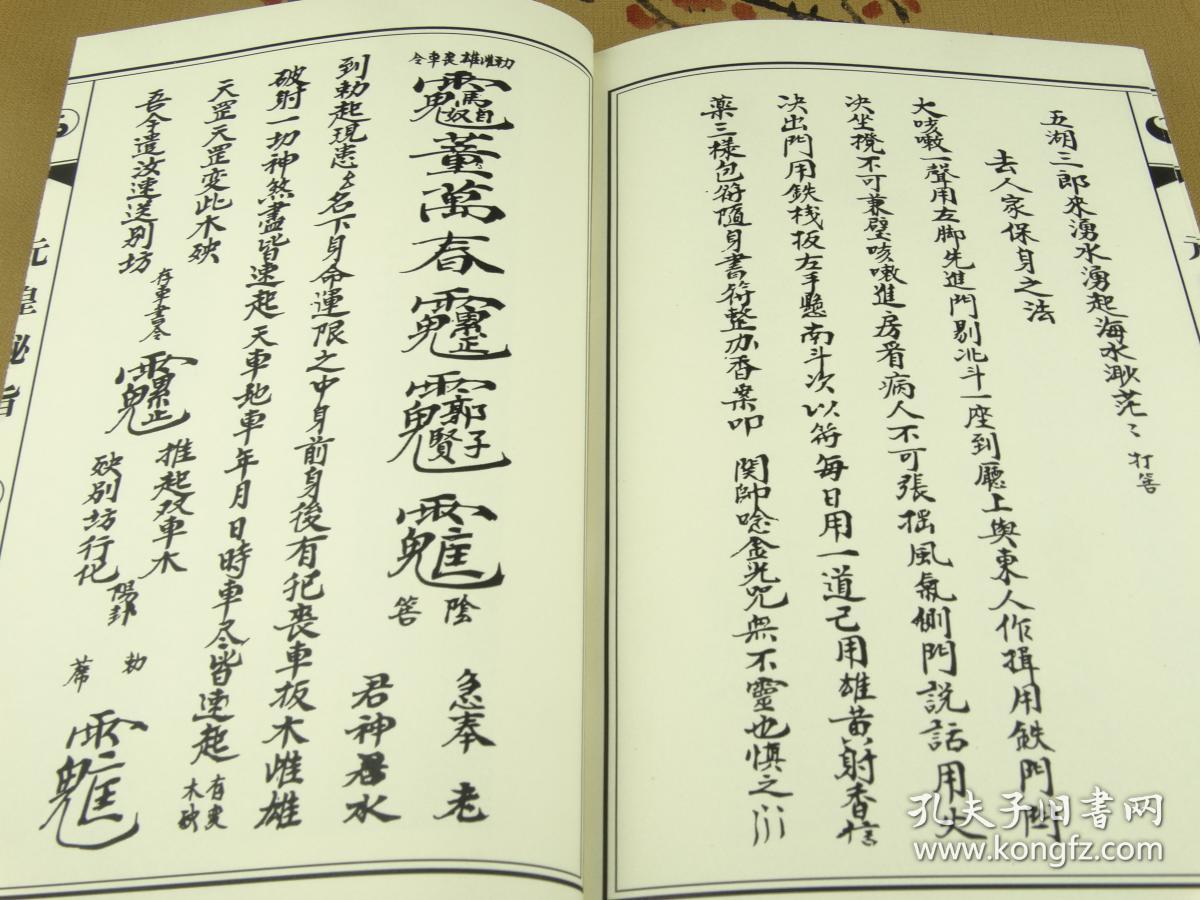 五湖三郎來湧水湧起海水渺茫〻打筶
去人家保身之法
大咳嗽一聲用左脚先進門剔北斗一座到廳上與東人作揖用鉄門閂
决坐攬不可兼壁咳嗽進房看病人不可張摇風氣側門説話用火
决出門用鉄栈板左手懸南斗次以符每日用一道己用雄黄射香信
薬三樣包符随身書符整办香案叩 関帥唸金光咒無不靈也慎之
勅雌雄喪車令
董萬春
陰筶
急奉老
君神水
到勅起現患名下身命運限之中身前身後有犯喪車扳木雌雄
破射一切神煞盡皆速起天車地車年月日時車尽皆速起
天罡天罡变此木殃
吾今遣汝速送别坊
存車書令
推起双车木
殃别坊行化
陽卦
勅
元皇秘旨
孔夫子旧书网
www.kongfz.com